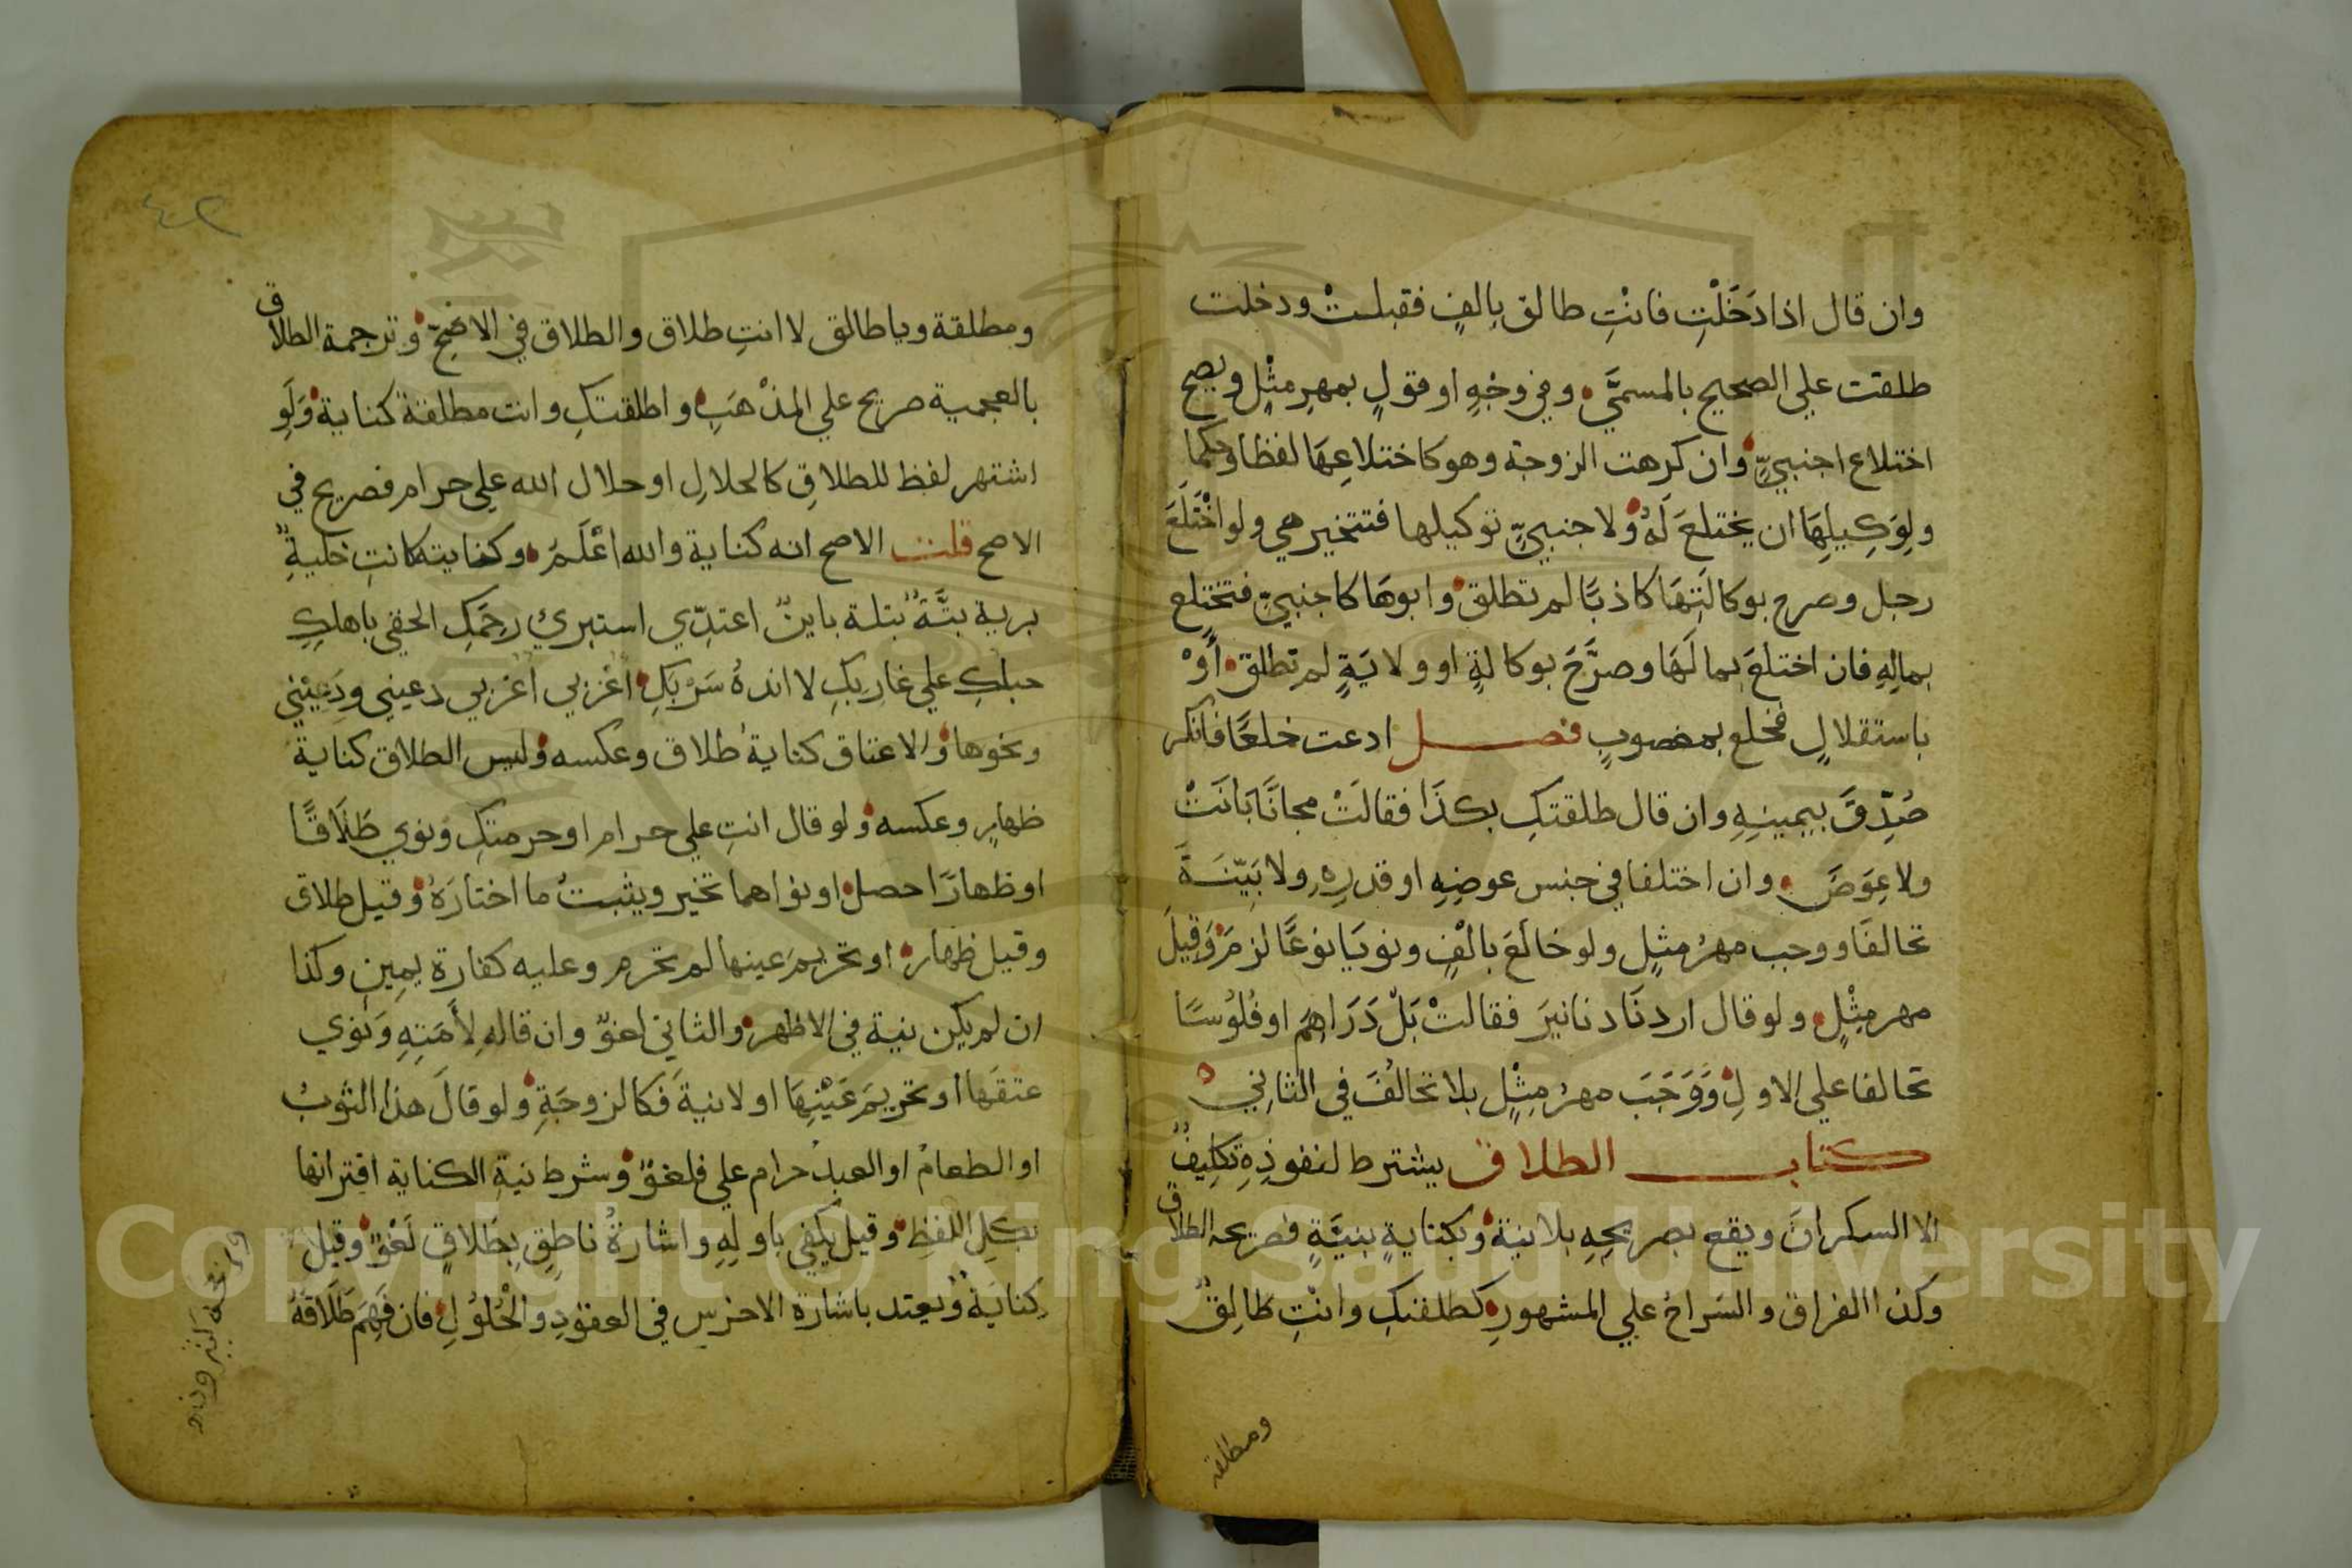 وان قال اذا دَخَلْتِ فانْتِ طالق بِالفٍ فقبلتْ ودخلت
طلقت علي الصحيح بالمسمَّي وفي وجْهٍ او قولٍ بمهرِ مثْلٍ ويصح
اختلاع اجنبيٍّ وان كرهت الزوجة وهو كاختلاعِهَا لفظا وحكما
ولِوَكِيلِهَا ان يختلعَ لَهُ ولاجنبيٍّ توكيلها فتتخير هي ولو اخْتَلَعَ
رجل وصرح بوكالَتِهَا كاذبًا لم تطلق وابوهَا كاجنبيٍّ فتختلع
بمالِهِ فان اختلعَ بمالَهَا وصرَّحَ بوكالةٍ او ولايَةٍ لم تطلق أَوْ
باستقلالٍ فخلع بمغصوبٍ فصل ادعت خلعًا فانكر
صُدِّقَ بيمينِهِ وان قال طلقتكِ بكذَا فقالَتْ مجانًا بَانَتْ
ولا عِوَضَ وان اختلفا في جنس عوضِهِ او قدرِهِ ولا بَيِّنَةَ
تحالفَا ووجب مهرُ مثلٍ ولو خالَعَ بالْفٍ ونويَا نوعًا لزمَ وَقِيلَ
مهر مِثْلٍ ولو قال اردنَا دنانيرَ فقالتْ بَلْ دَرَاهِمَ او فُلُوسًا
تحالفا علي الاولِ وَوَجَبَ مهرُ مِثْلٍ بلا تحالُفَ في الثانِي
كتاب الطلاق يشترط لنفوذِهِ تكلِيفٌ
الا السكرانَ ويقع بصريحِهِ بلا نية وبكنايةٍ بنيَّةٍ فصريحه الطلاق
وكذا الفراق والسَراحُ علي المشهورِ كطلقتكِ وانْتِ طَالِقٌ
ومطلقة
٤٢
ومطلقة ويا طالق لا انتِ طلاق والطلاق في الاصَحِّ وترجمة الطلاق
بالعجمية صريح علي المذْهَبِ واطلقتكِ وانت مطلقة كناية وَلَوِ
اشتهر لفظ للطلاقِ كالحلالِ او حلال الله علي حرام فصريح في
الاصح قلت الاصح انه كناية والله اعْلَمُ وكنايته كانتِ خليةٌ
برية بتَّةٌ بتلة باينٌ اعتدِّي استبري رحَمَكِ الحقي باهلكِ
حبلكِ علي غارِبِكِ لا اندهُ سَرْبَكِ اعزبي اغربي دعيني ودَعِيْني
ونحوها والاعتاق كنايةُ طلاق وعكسه وليس الطلاق كناية
ظهارٍ وعكسه ولو قال انتِ علي حرام او حرمتكِ ونوي طَلَاقًا
او ظهارًا حصل او نواهما تخير ويثبتُ ما اختارَهُ وقيل طلاق
وقيل ظهار او تحريمَ عينها لم تحرم وعليه كفارة يمِينٍ وكذا
ان لم يكن نية في الاظهر والثاني لغوٌ وان قاله لأَمَتِهِ وَنَوي
عتقَها او تحريمَ عَيْنِهَا او لانيةَ فكالزوجَةِ ولو قالَ هذا الثوبُ
او الطعامُ او العبدُ حرام علي فلغوٌ وشرط نيةِ الكناية اقترانها
بكلِ اللفظِ وقيل يكفي باولِهِ واشارةُ ناطِقٍ بِطَلاقٍ لَغْوٌ وقيل
كِنايَةٌ ويُعتد باشارة الاخرسِ في العقودِ والْحُلُولِ فان فَهِمَ طَلَاقَهُ